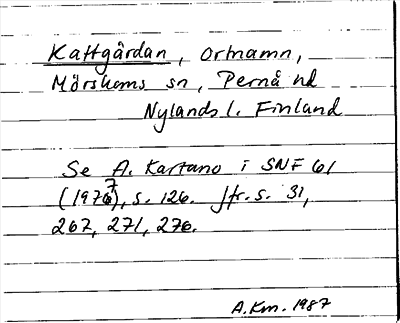 Kattgårdan, ortnamn,
Mörskoms sn, Pernå hd
Nylands l. Finland
Se A. Kartano i SNF 61
(1977), s. 126. Jfr. s. 31,
267, 271, 276.
A. Km. 1987